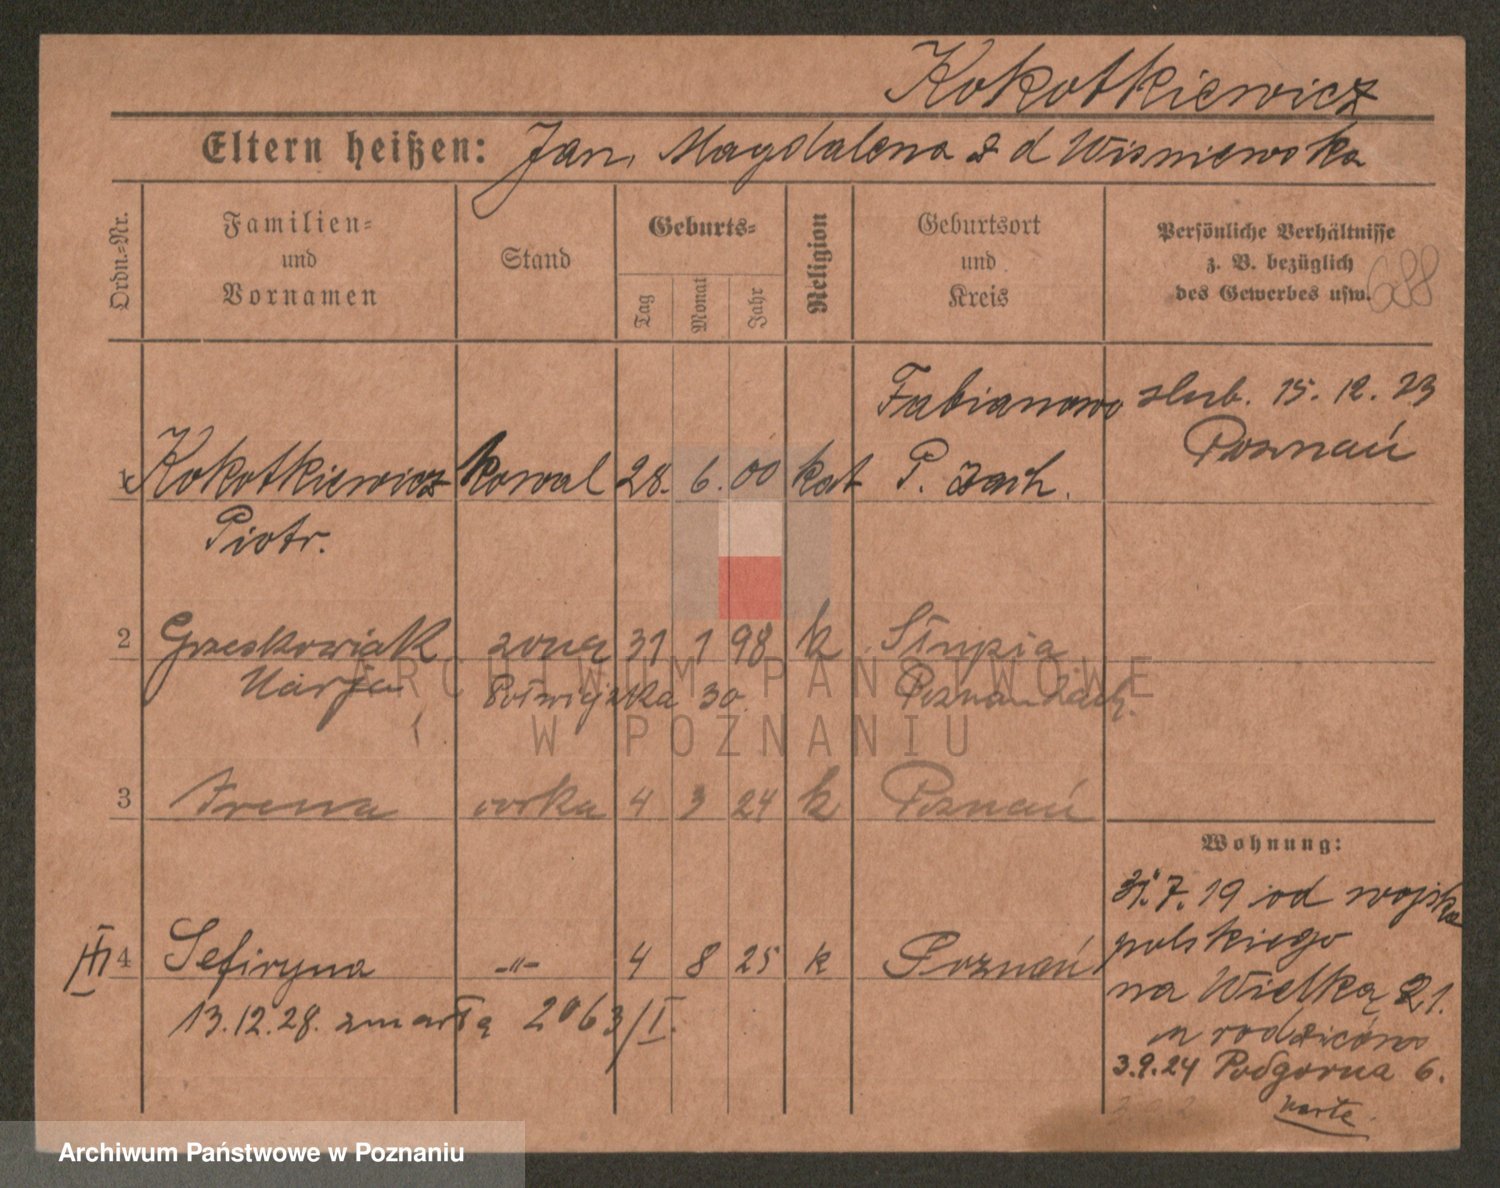 Kokotkiewicz
Eltern heißen: Jan, Magdalena z d Wisniewska
Ordn.-Nr.
Familien- und Vornamen
Stand
Geburts-
Tag Monat Jahr
Religion
Geburtsort und Kreis
Persönliche Verhältnisse
z. B. bezüglich
des Gewerbes usw.
688
Fabianowo slub. 15. 12. 23
Poznań
1 Kokotkiewicz kowal 28. 6. 00 kat P. zach.
Piotr.
2 Grzeskowiak zona 31 1 98 k Słupia
Marja Półwiejska 30. Poznań zach.
3 Irena corka 4 3 24 k Poznań
Wohnung:
31.7.19 od wojska
polskiego
III 4 Sefiryna -"- 4 8 25 k Poznań
na Wielką 21.
13.12.28. zmarła 2063/I.
u rodziców
3.9.24 Podgorna 6.
karte.
ARCHIWUM PAŃSTWOWE
W POZNANIU
Archiwum Państwowe w Poznaniu